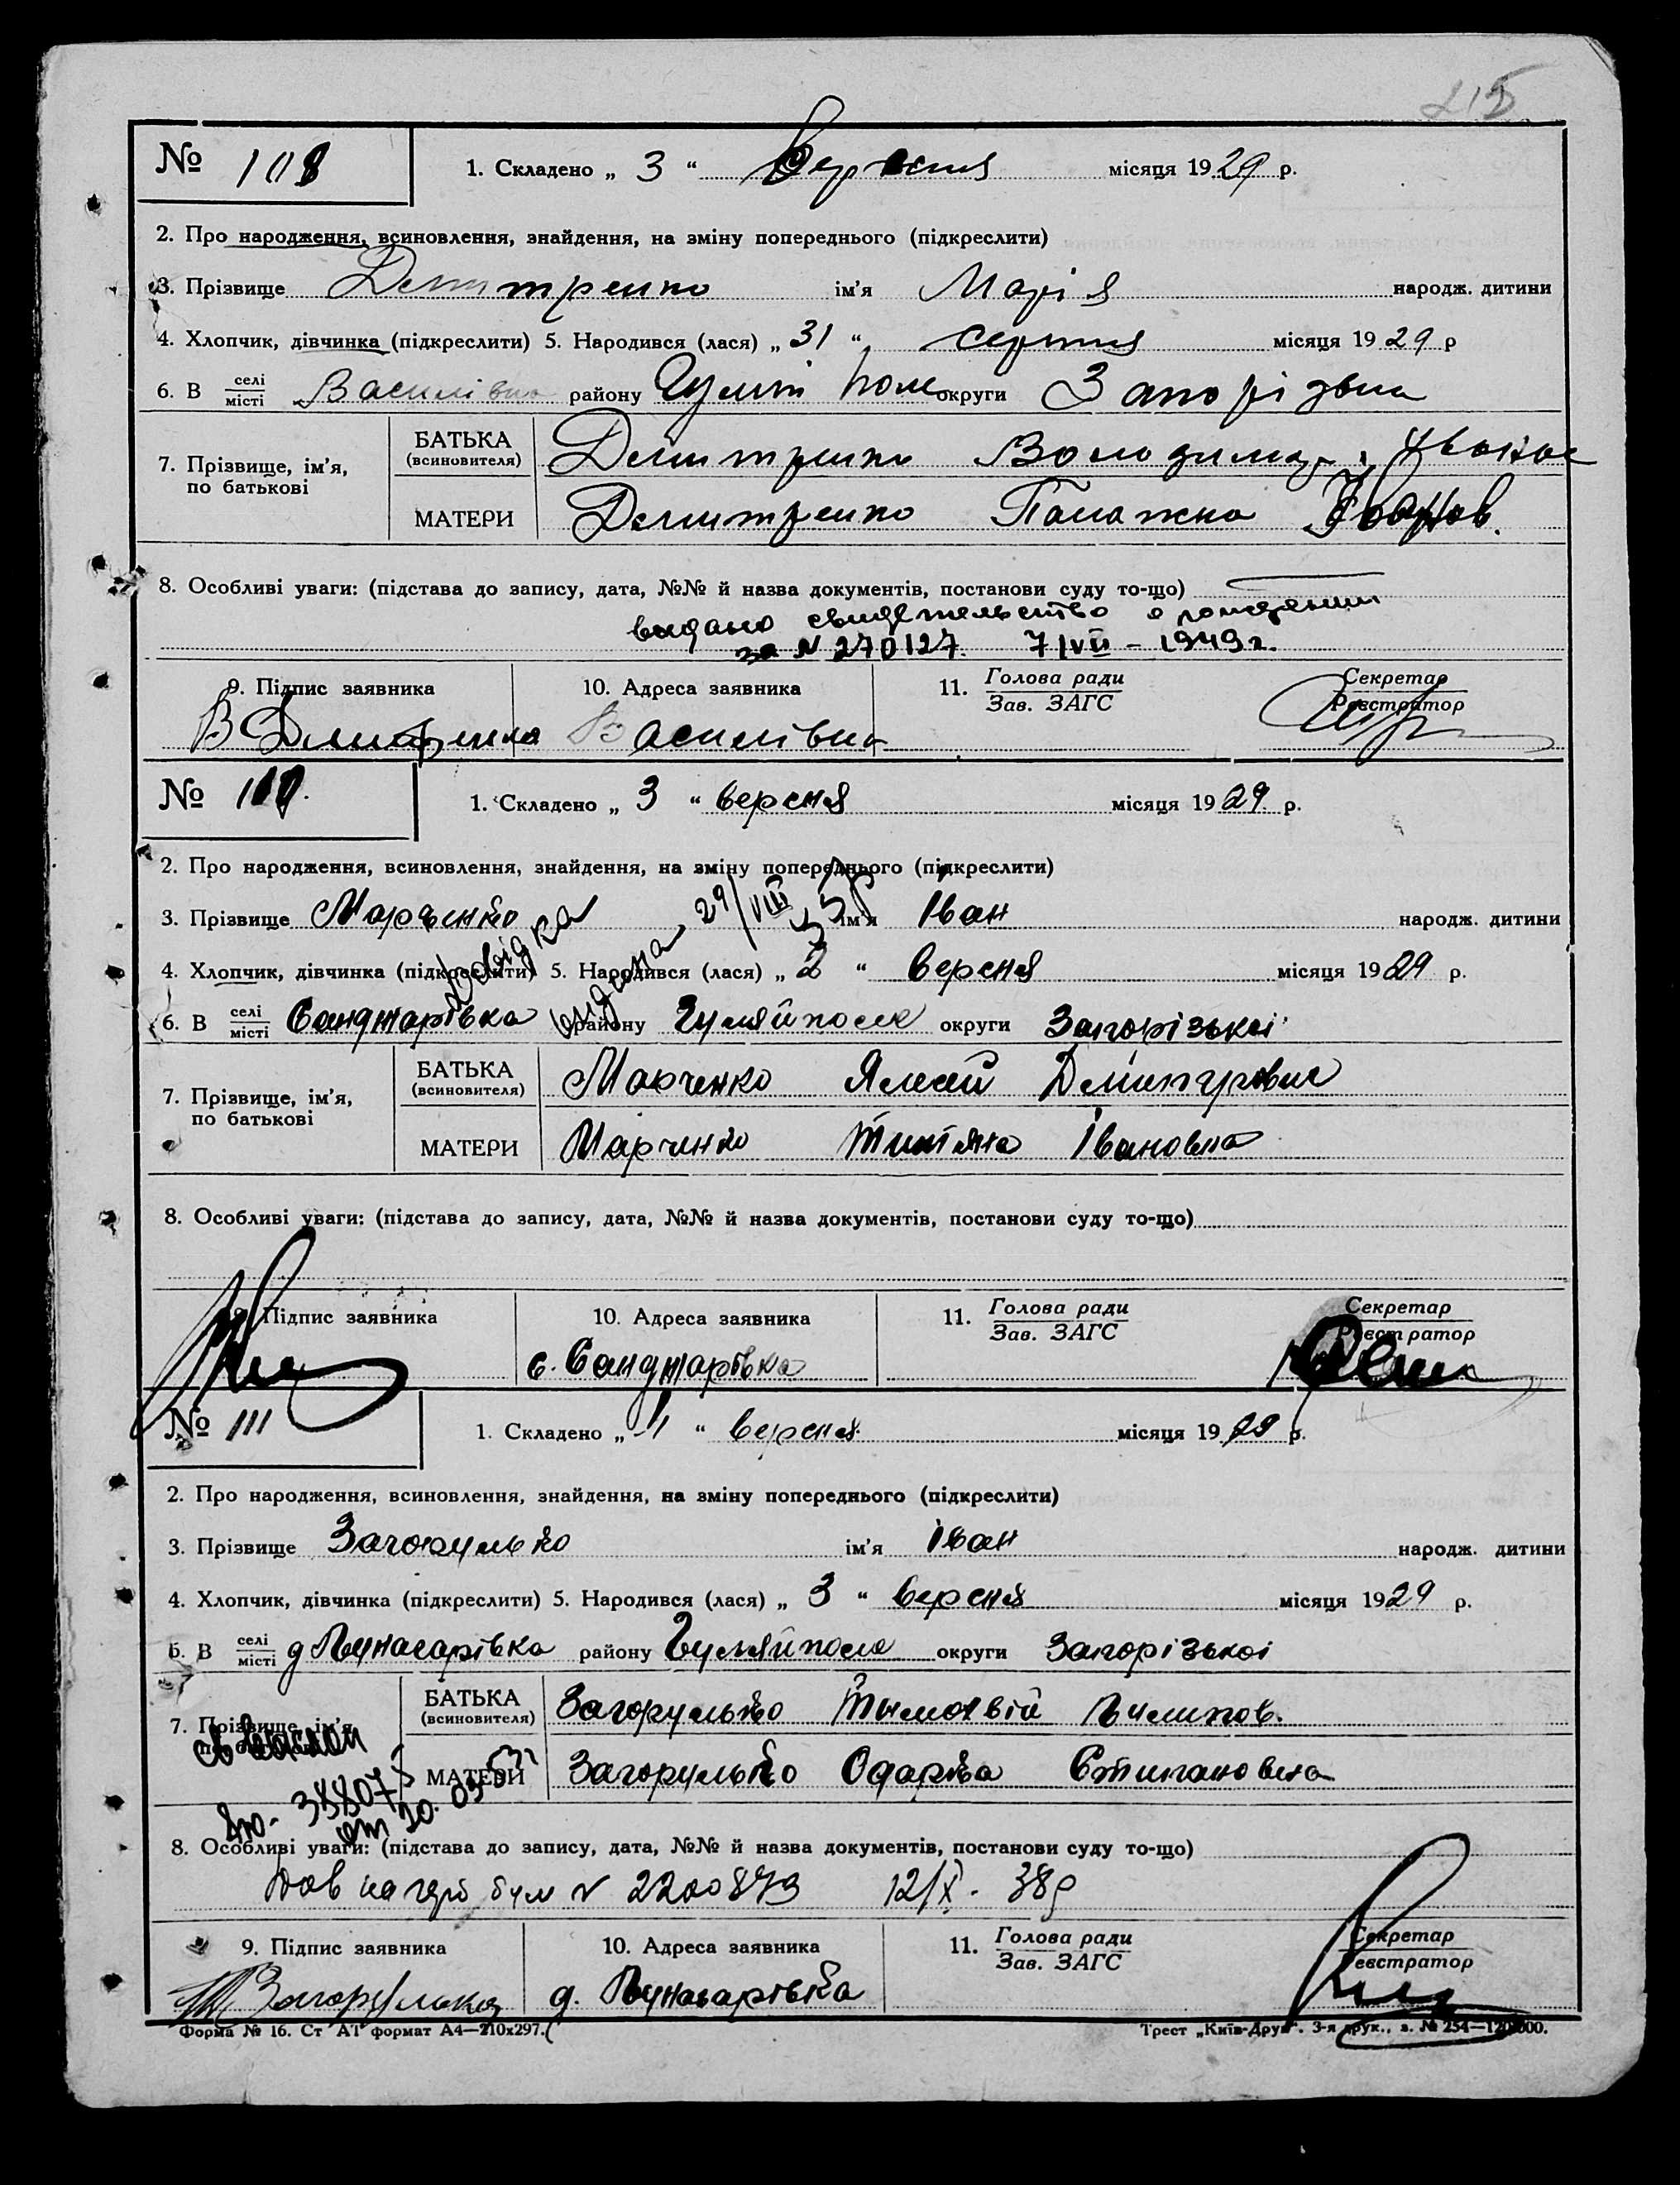 215
№ 108 1. Складено „ 3 “ Вересня місяця 1929 р.
2. Про народження, всиновлення, знайдення, на зміну попереднього (підкреслити)
3. Прізвище Демитренко ім’я Марія народж. дитини
4. Хлопчик, дівчинка (підкреслити) 5. Народився (лася) „ 31 “ серпня місяця 1929 р
6. В селі/місті Василівка району Гуляй Поле округи Запорізька
7. Прізвище, ім’я, по батькові
БАТЬКА (всиновителя) Демитренко Володимир
МАТЕРИ Демитренко Палажка Іванов.
8. Особливі уваги: (підстава до запису, дата, №№ й назва документів, постанови суду то-що)
видано свидетельство о рождении
за N 270127. 7/VII – 1949 г.
9. Підпис заявника 10. Адреса заявника 11. Голова ради/Зав. ЗАГС Секретар/Реєстратор
В Демитренко Василівка
№ 1. Складено „ 3 “ версня місяця 1929. р.
2. Про народження, всиновлення, знайдення, на зміну попереднього (підкреслити)
3. Прізвище Марченко ім’я Іван народж. дитини
довідка видана 29/VIII
4. Хлопчик, дівчинка (підкреслити) 5. Народився (лася) „ 2 “ версня місяця 1929 р.
6. В селі/місті Санджарівка району Гуляйполе округи Запорізької
7. Прізвище, ім’я, по батькові
БАТЬКА (всиновителя) Марченко Алексй Дмитрович
МАТЕРИ Марченко Титяна Івановна
8. Особливі уваги: (підстава до запису, дата, №№ й назва документів, постанови суду то-що)
9. Підпис заявника 10. Адреса заявника 11. Голова ради/Зав. ЗАГС Секретар/Реєстратор
с. Санджарівка
№ 111 1. Складено „ 4 “ версня. місяця 1929 р.
2. Про народження, всиновлення, знайдення, на зміну попереднього (підкреслити)
3. Прізвище Загорулько ім’я Іван народж. дитини
4. Хлопчик, дівчинка (підкреслити) 5. Народився (лася) „ 3 “ версня місяця 1929 р.
6. В селі/місті району Гуляйполе округи Запорізької
7. Прізвище, ім’я, по батькові
БАТЬКА (всиновителя) Загорулько Тымохвій Пилипов.
МАТЕРИ Загорулько Одарка Стипановна
8. Особливі уваги: (підстава до запису, дата, №№ й назва документів, постанови суду то-що)
N 2200873 12/X. 38р
9. Підпис заявника 10. Адреса заявника 11. Голова ради/Зав. ЗАГС Секретар/Реєстратор
Загорулько
Форма № 16. Ст А1 формат А4—210х297.
Трест „Київ-Друк“. 3-я друк., з. № 254—120.000.